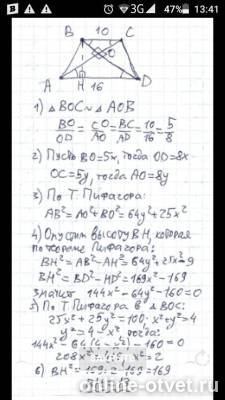 3G 47% 13:41
B 10 C
O
A H 16 D
1) △BOC ~ △AOB
BO/OD = CO/AO = BC/AD = 10/16 = 5/8
2) Пусть BO=5x, тогда OD=8x
OC=5y, тогда AO=8y
3) По Т. Пифагора:
AB²=AO²+BO²=64y²+25x²
4) Опустим высоту BH, которая
по теореме Пифагора:
BH²=AB²-AH²=64y²+25x²-9
BH²=BD²-HD²=169x²-169
значит 144x²-64y²-160=0
5) По Т. Пифагора в △BOC:
25x²+25y²=100. x²+y²=4
y²=4-x², тогда:
144x²-64(4-x²)-160=0
208x² x²=2
6) BH²=169·2-169=169
online-otvet.ru